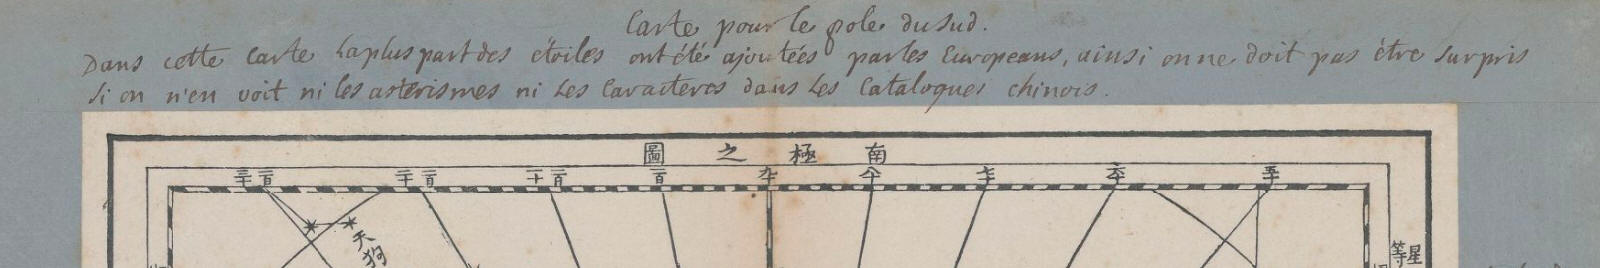 Carte pour le pole du Sud.
Dans cette Carte la plus part des étoiles ont été ajoutées par les Europeans, ainsi on ne doit pas être surpris
si on n'en voit ni les asterismes ni les Caracteres dans les Catalogues chinois.
南極之圖
五十 六十 七十 八十 九十 一百 一百一十 一百二十 一百三十
天狗
星等